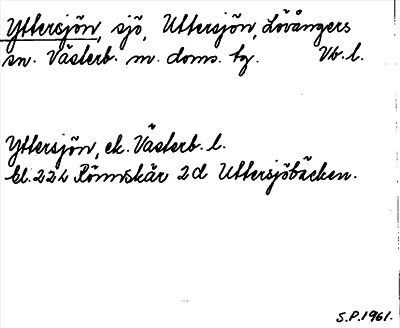 Yttersjön, sjö, Uttersjön, Lövångers
sn. Västerb. m. doms. tg. Vb. l.
Yttersjön, ek. Västerb. l.
bl. 224 Rönnskär 2d Uttersjöbäcken.
S.P. 1961.